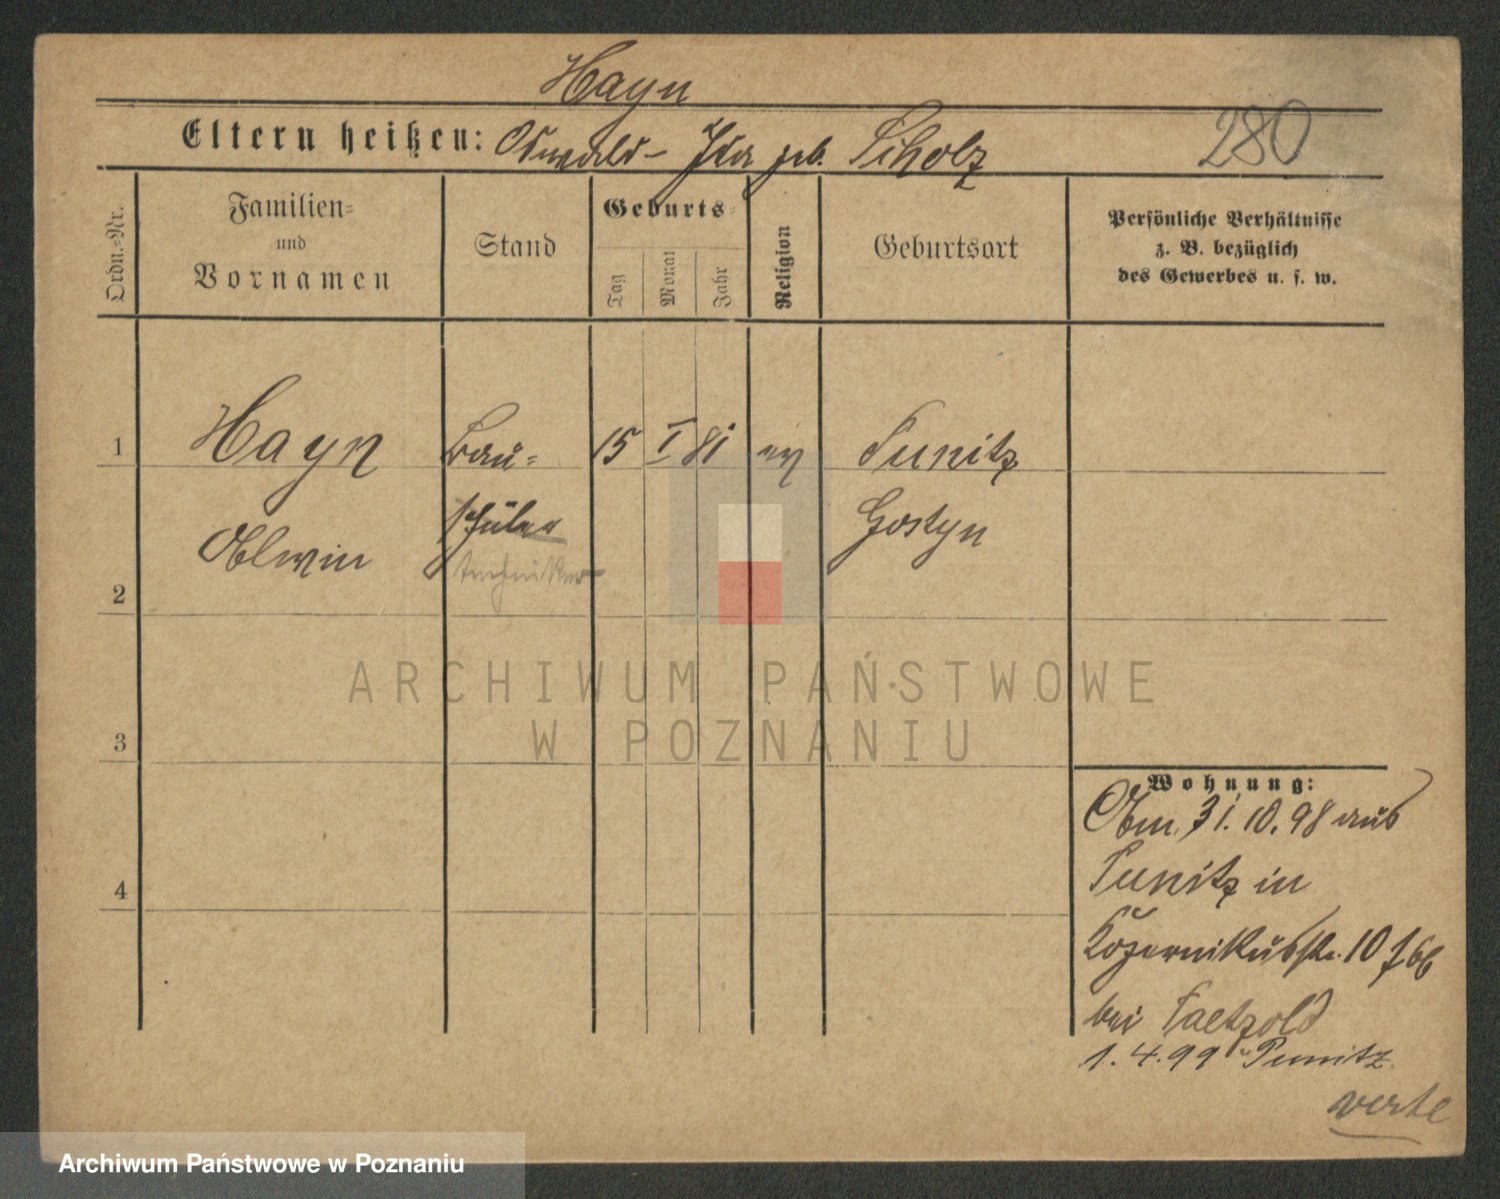 Hayn
Eltern heißen: Oswald - Ida geb. Scholz
280
Ordn.=Nr.
Familien=
und
Vornamen
Stand
Geburts=
Tag
Monat
Jahr
Religion
Geburtsort
Persönliche Verhältnisse
z. B. bezüglich
des Gewerbes u. s. w.
1
Hayn
Bau=
15 I 81
ev
Punitz
schüler
Gostyn
Alwin
techniker
2
3
4
ARCHIWUM PAŃSTWOWE
W POZNANIU
Wohnung:
Am 31.10.98 aus
Punitz in
bei Paetzold
1.4.99 Punitz
verte
Archiwum Państwowe w Poznaniu